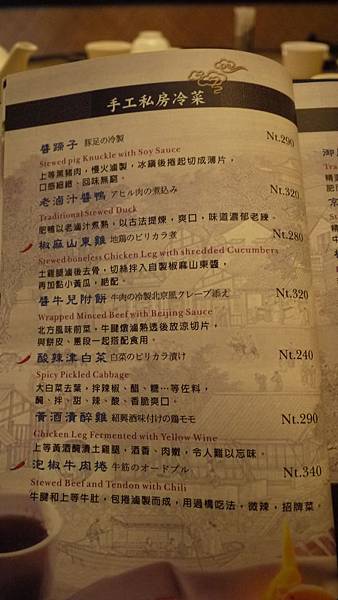 手工私房冷菜
醬蹄子 豚足の冷製 Nt.290
Stewed pig Knuckle with Soy Sauce
上等黑豬肉，慢火滷製，冰鎮後捲起切成薄片，
口感細緻、回味無窮。
老滷汁醬鴨 アヒル肉の煮込み Nt.320
Traditional Stewed Duck
肥鴨以老滷汁煮熟，以古法提煉，爽口，味道濃郁老練。
椒麻山東雞 地鶏のピリカラ煮 Nt.280
Stewed boneless Chicken Leg with shredded Cucumbers
土雞腿滷後去骨，切絲拌入自製椒麻山東醬，
再加點小黃瓜，絕配。
醬牛兒附餅 牛肉の冷製北京風クレープ添え Nt.320
Wrapped Minced Beef with Beijing Sauce
北方風味前菜，牛腱燉滷熟透後放涼切片，
與餅皮、蔥段一起搭配食用。
酸辣漬白菜 白菜のピリカラ漬け Nt.240
Spicy Pickled Cabbage
大白菜去葉，拌辣椒、醋、糖…等佐料，
醃、拌、甜、辣、酸、香脆爽口。
黃酒漬醉雞 紹興酒味付けの鶏モモ Nt.290
Chicken Leg Fermented with Yellow Wine
上等黃酒醃漬土雞腿，酒香、肉嫩，令人難以忘味。
泡椒牛肉捲 牛筋のオードブル Nt.340
Stewed Beef and Tendon with Chili
牛腱和上等牛肚，包捲滷製而成，用過橋吃法，微辣，招牌菜。